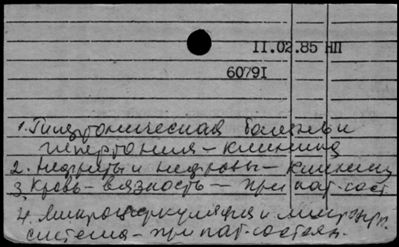 11.02.85 НП
60791
1. Гипертоническая болезнь и
гипертония - клиника
2. Нефриты и нефрозы - клиника
3. Кровь - вязкость - при пат. сост
4. Микроциркуляция и микроцирк.
система - при пат. состоян.